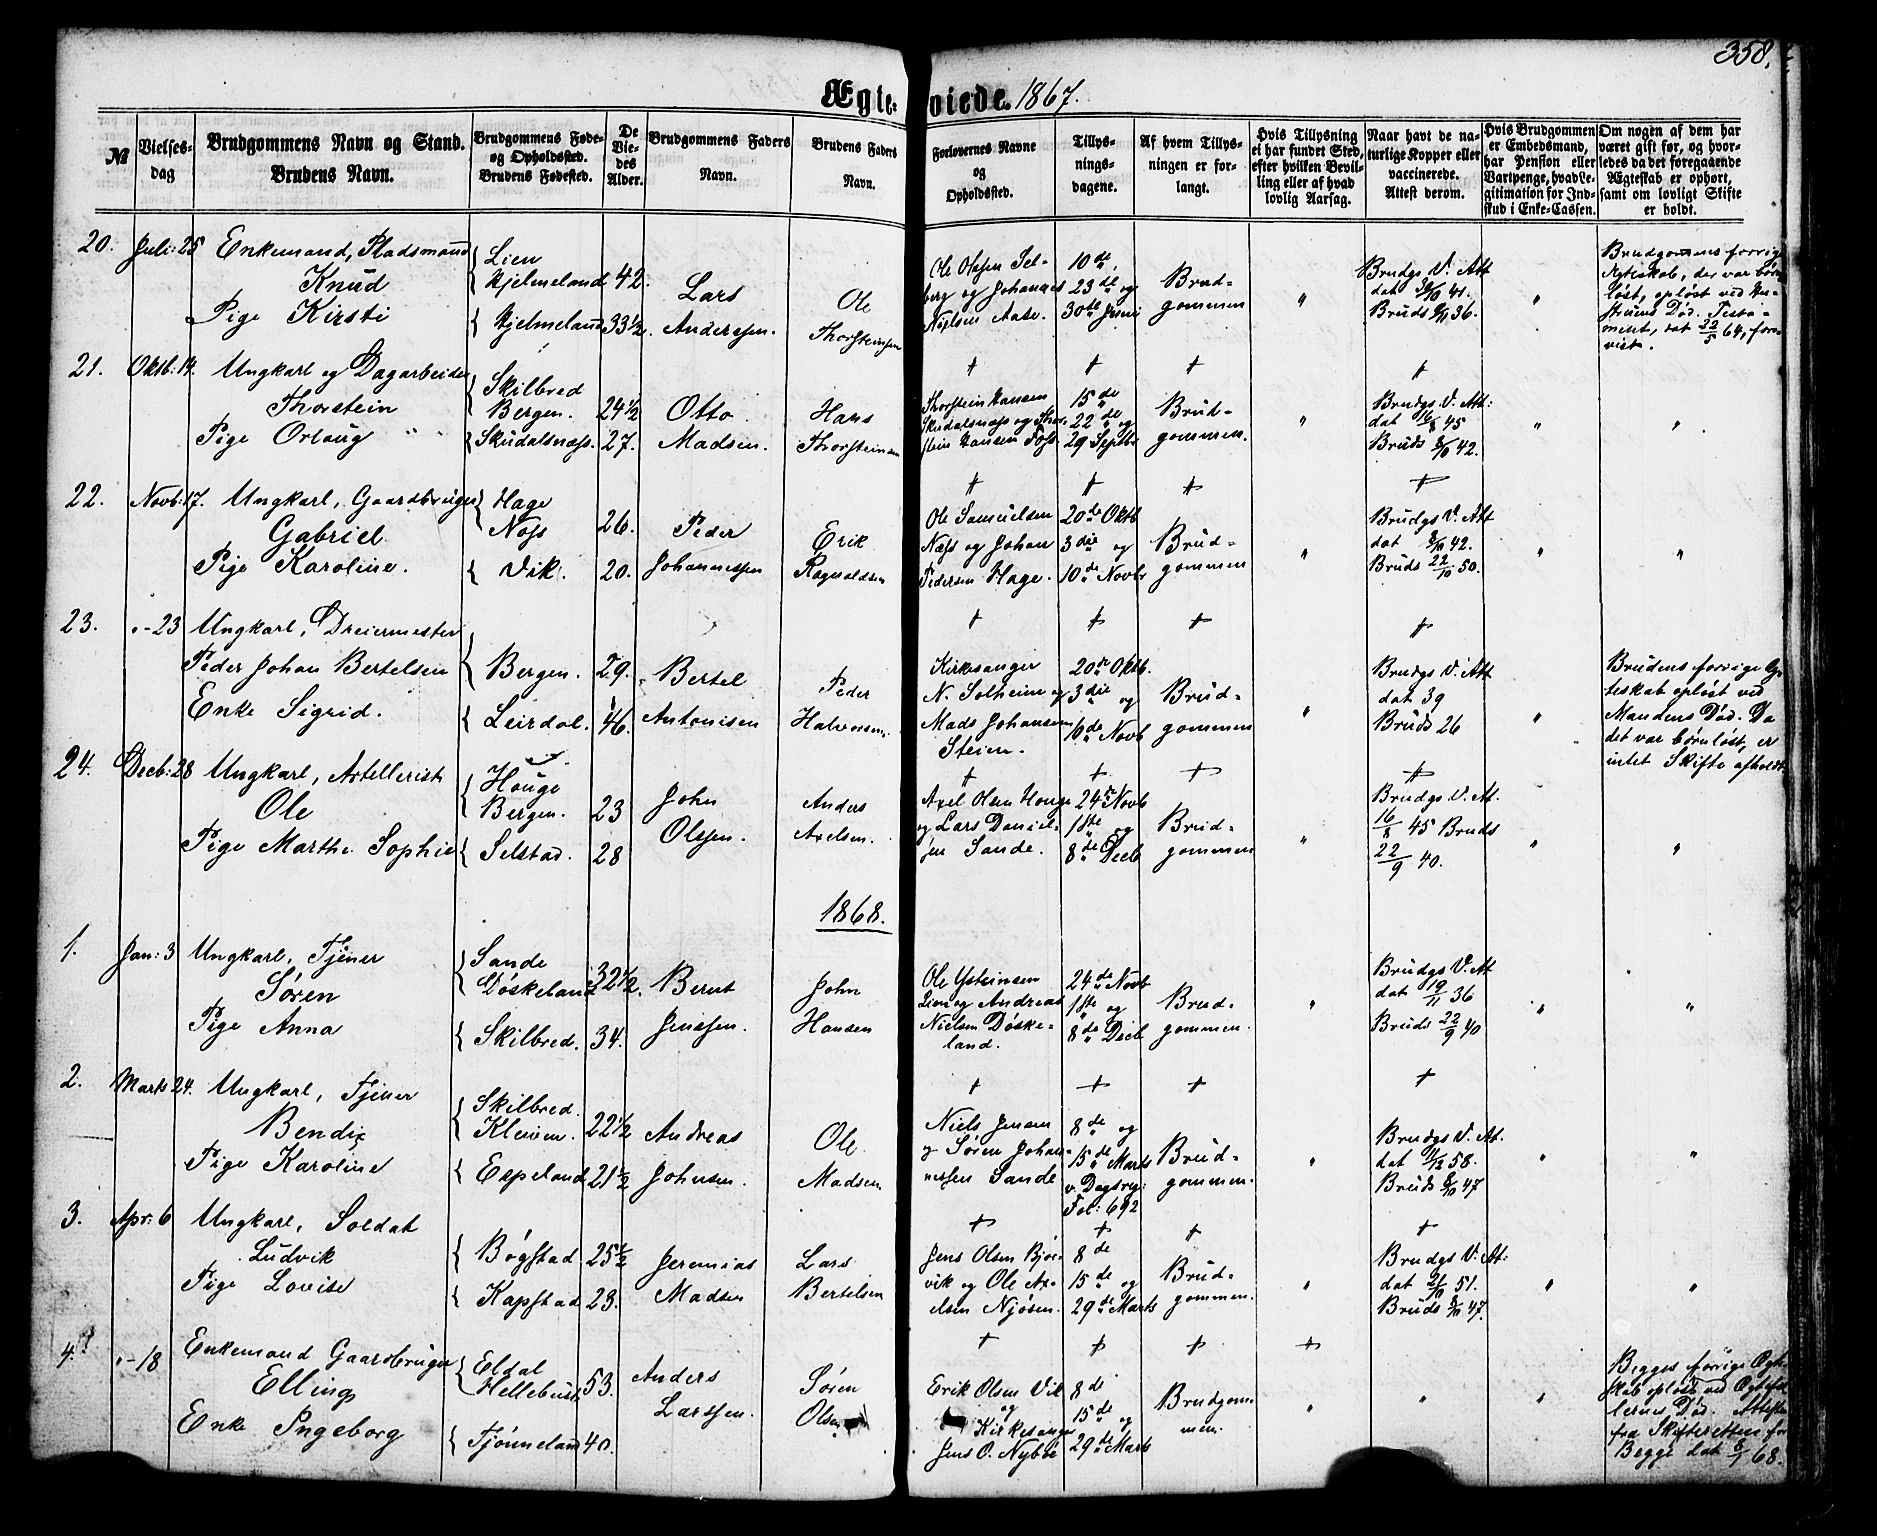 358.
Ægte- viede. 1867.
№ | Vielses-dag | Brudgommens Navn og Stand. Brudens Navn. | Brudgommens Føde- og Opholdssted. Brudens Fødested. | De Vie-des Alder. | Brudgommens Faders Navn. | Brudens Faders Navn. | Forlovernes Navne og Opholdssted. | Tillys-nings-dagene. | Af hvem Tillys-ningen er for-langt. | Hvis Tillysning ei har fundet Sted, efter hvilken Bevil-ling eller af hvad lovlig Aarsag. | Naar havt de na-turlige Kopper eller vaccinerede. Attest derom. | Hvis Brudgommen er Embedsmand, har Pension eller Vartpenge, hvad Le-gitimation for Ind-skud i Enke-Cassen. | Om nogen af dem har været gift før, og hvor-ledes da det foregaaende Ægteskab er ophørt, samt om lovligt Skifte er holdt.
20. Juli: 25 Enkemand, Pladsmand Knud | Lien Hjelmeland 42. | Lars Anderssen. | Ole Thorsteinsen | Ole Olssen Sel-berg og Johannes Nielsen Aase. | 10de 23de og 30de Juni | Brud-gommen | " | Brudgs V. Att dat 41. Bruds 36. | " | Brudgommens forrige Ægteskab, der var børn-løst, opløst ved Hu-struens Død. Testa-ment, dat 22/5 64, fore-vist.
Pige Kirsti | Hjelmeland 33½.
21. Oktb: 14. Ungkarl og Dagarbeider Thorstein | Skilbred Bergen. 24½ | Otto Madsen. | Hans Thorsteinsen | Thorstein Hansen Skudalsnæss og Thor-stein Hansen Foss. | 15de 22de og 29 Septbr | Brud-gommen. | " | Brudgs V. Att: dat 16/8 45 Bruds 42. | " | "
Pige Orlaug | Skudalsnæss. 27.
22. Novb: 17. Ungkarl, Gaardbruger Gabriel | Hage Noss 26. | Peder Johannessen | Erik Ragnvaldsen | Ole Samuelsen Næss og Johan Pedersen Hage. | 20de Oktb 3die og 10de Novbr | Brud-gommen | " | Brudgs V. Att dat 42. Bruds 22/10 50. | " | "
Pige Karoline. | Vik. 20.
23. "-23 Ungkarl, Dreiermester Peder Johan Bertelsen | Bergen. 29. | Bertel Antonisen | Peder Halvorsen. | Kirkesanger N. Solheim og Mads Johansen Steien. | 20de Oktb. 3die og 10de Novb | Brud-gommen | " | Brudgs V. Att dat 39 Bruds 26 | " | Brudens forrige Æg-teskab opløst ved Mandens Død. Da det var børnløst, er intet Skifte afholdt.
Enke Sigrid. | Leirdal. 46.
24. Decb: 28 Ungkarl, Artellerist Ole | Houge Bergen. 23 | John Olssen. | Anders Axelsen. | Axel Olsen Houge og Lars Daniel-sen Sande. | 24de Novb 1ste og 8de Decb | Brud-gommen | " | Brudgs V. At. 16/8 45 Bruds 22/9 40. | " | "
Pige Marthe Sophie | Selstad. 28
1868.
1. Jan: 3 Ungkarl, Tjener Søren | Sande Døskeland 32½. | Bernt Jenssen. | John Hansen | Ole Ysteinsen Lien og Andreas Nielsen Døske-land. | 24de Novb 1ste og 8de Decb | Brud-gommen. | " | Brudgs V. At dat 19/11 36 Bruds 22/9 40 | " | "
Pige Anna | Skilbred. 34.
2. Marts 24. Ungkarl, Tjener Bendix | Skilbred. Kleiven. 22½ | Andreas Johnsen. | Ole Madsen | Niels Jensen og Søren Johan-nessen Sande | 8de og 15de Marts v. Dagsreg: Fol: 692 | Brud-gommen. | " | Brudgs V. At. dat 58. Bruds 47 | " | "
Pige Karoline | Espeland 21½
3. Apr: 6 Ungkarl, Soldat Ludvik | Bøgstad 25½ | Jeremias Madsen | Lars Bertelsen | Jens Olsen Bjør-vik og Ole Ax-elsen Njøsen. | 8de 15de og 29de Marts | Brud-gommen. | " | Brudgs V. At: dat 51. Bruds 47. | " | "
Pige Lovise | Kapstad 23.
4. "-18 Enkemand Gaardbruger Elling | Eldal Hellebust 53. | Anders Larssen. | Søren Olsen | Erik Olsen Vik og Kirkesanger Jens O. Nybøe | 8de 15de og 29de Marts | Brudgom-men. | " | " | " | Begges forrige Ægte-skab opløst ved Ægtefæl-lernes Død. Attester fra Skifteretten for Begge dat 68.
Enke Ingeborg | Tjønneland 40.